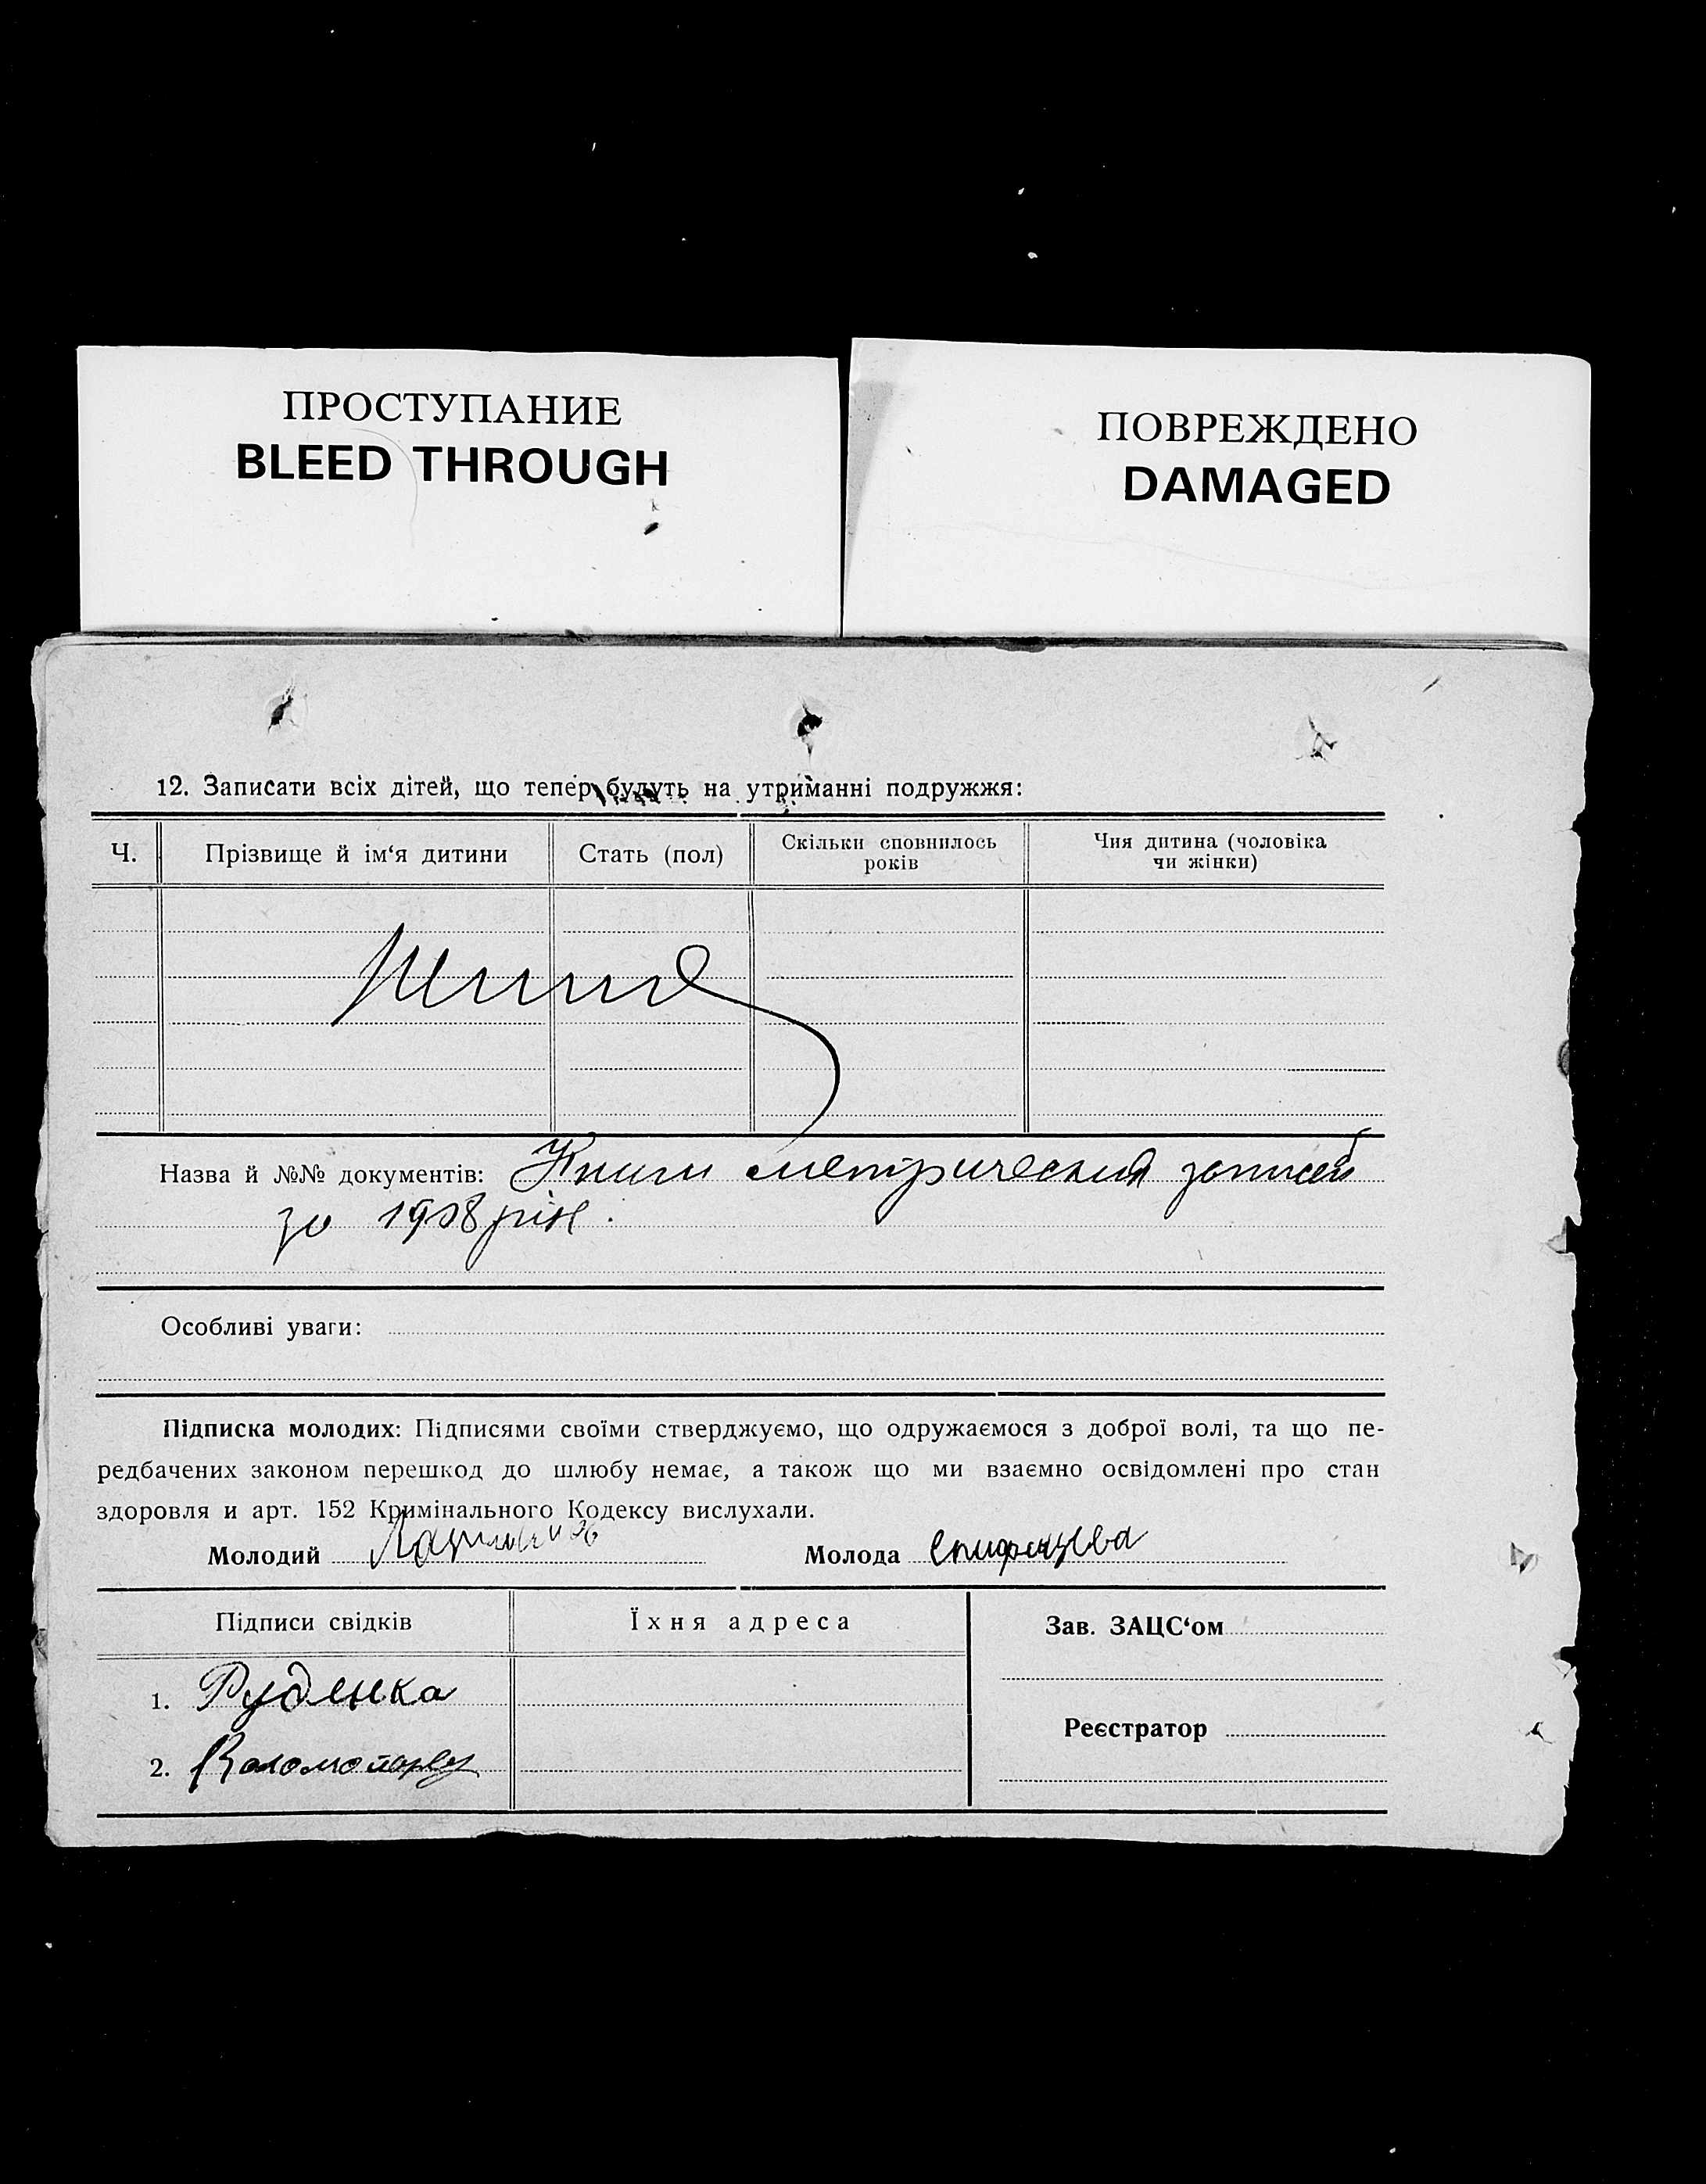 ПРОСТУПАНИЕ
BLEED THROUGH
ПОВРЕЖДЕНО
DAMAGED
12. Записати всіх дітей, що тепер будуть на утриманні подружжя:
Ч.
Прізвище й ім‘я дитини
Стать (пол)
Скільки сповнилось
років
Чия дитина (чоловіка
чи жінки)
Назва й №№ документів: Книги метрическия записей
за 1908 рік.
Особливі уваги:
Підписка молодих: Підписями своїми стверджуємо, що одружаємося з доброї волі, та що пе-
редбачених законом перешкод до шлюбу немає, а також що ми взаємно освідомлені про стан
здоровля и арт. 152 Кримінального Кодексу вислухали.
Молодий
Молода Епифанцева
Підписи свідків
Їхня адреса
Зав. ЗАЦС‘ом
1. Руденка
Реєстратор
2.